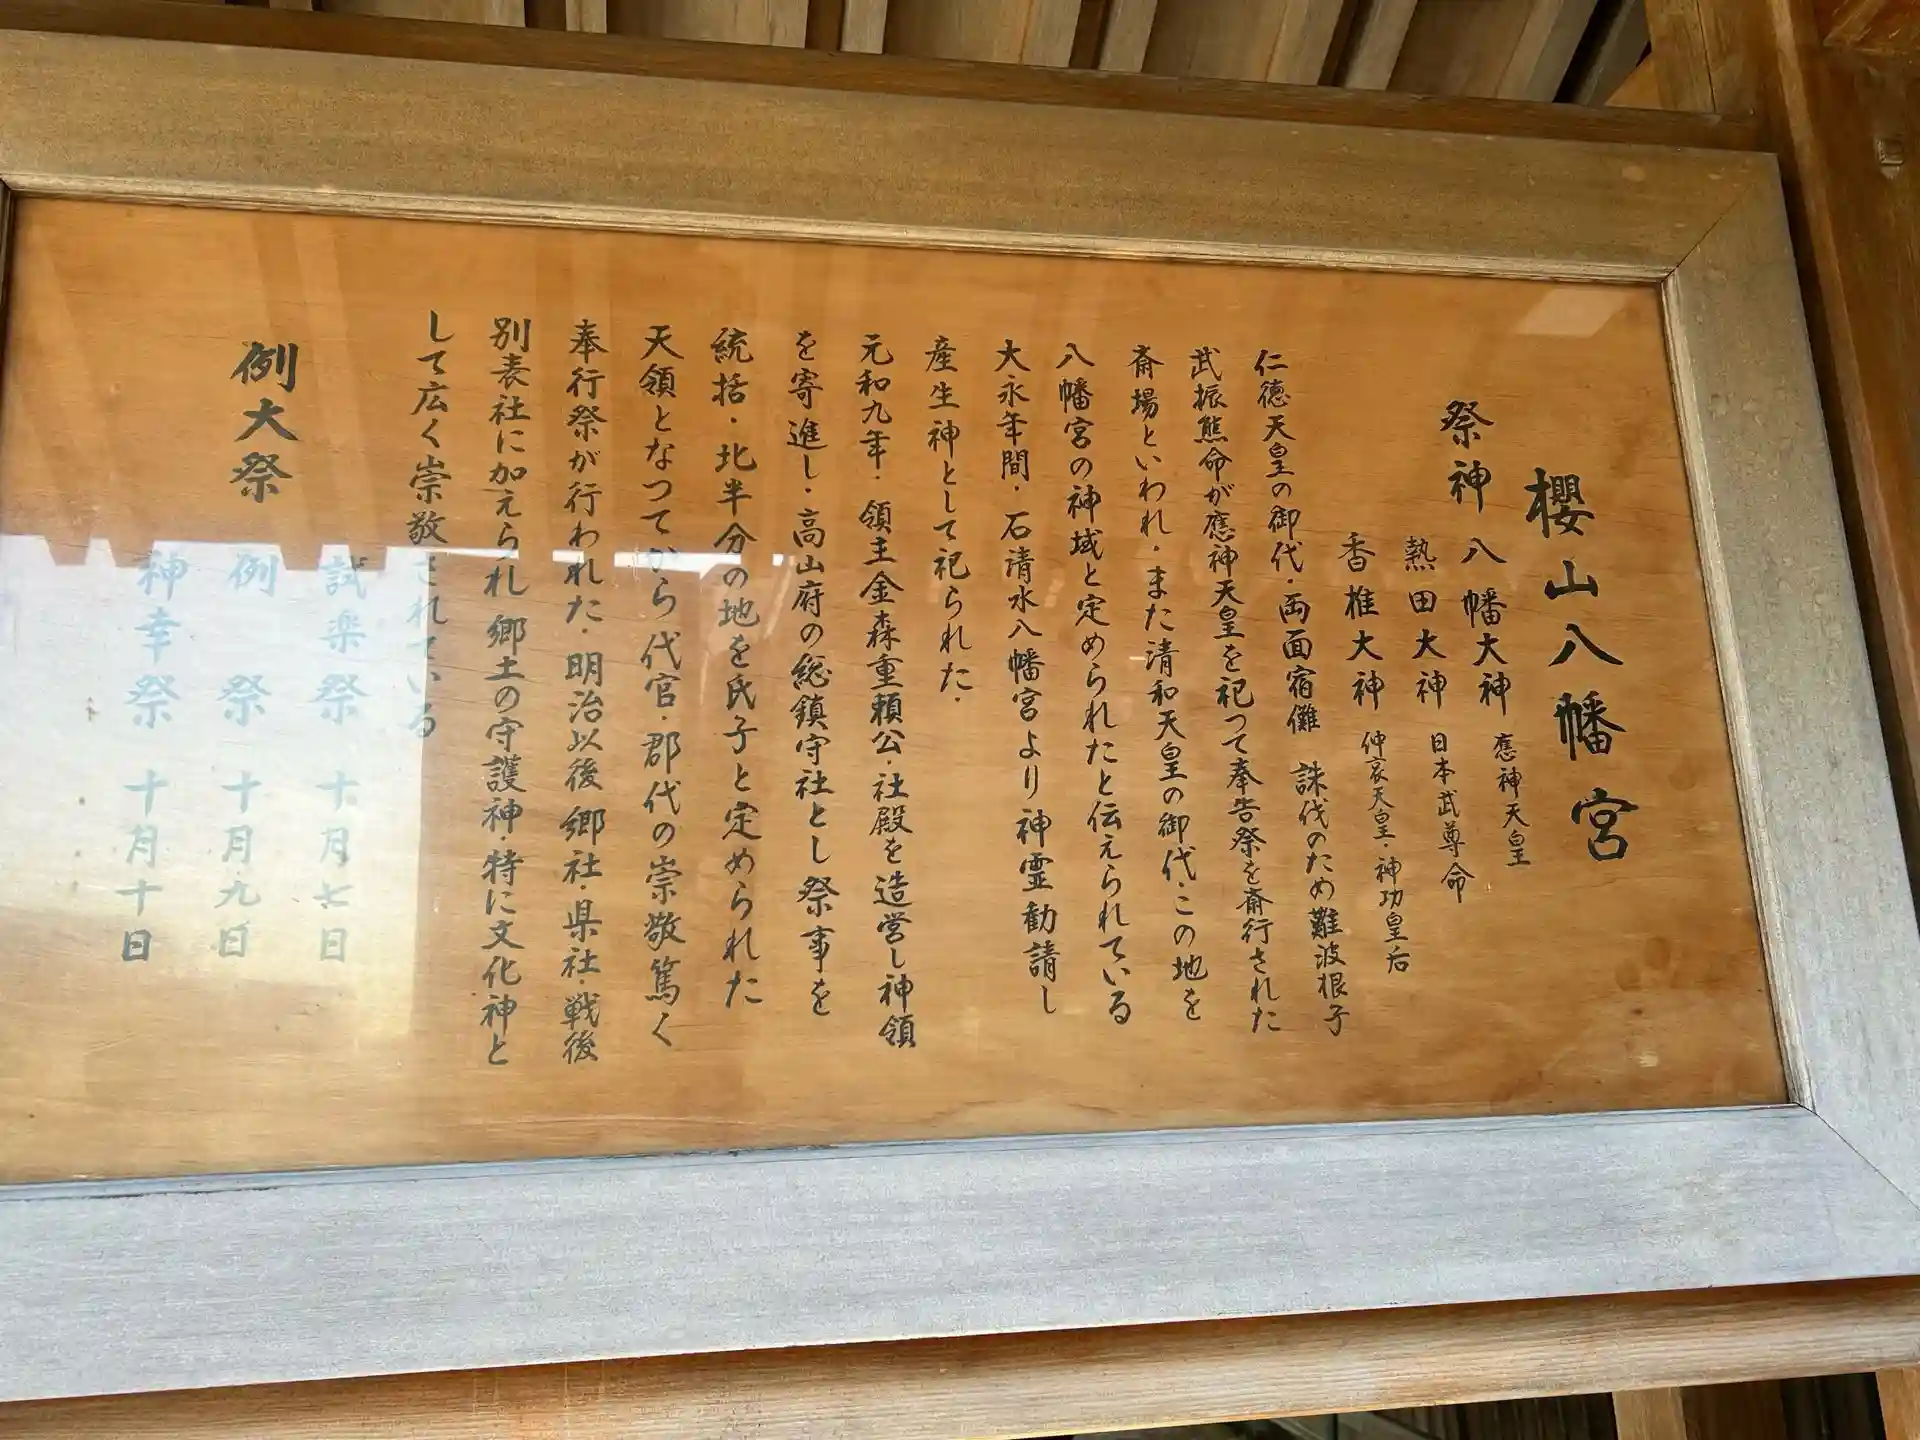 櫻山八幡宮
祭神 八幡大神 應神天皇
熱田大神 日本武尊命
香椎大神 仲哀天皇・神功皇后
仁徳天皇の御代・両面宿儺 誅伐のため難波根子
武振熊命が應神天皇を祀つて奉告祭を斎行された
斎場といわれ・また清和天皇の御代・この地を
八幡宮の神域と定められたと伝えられている
大永年間・石清水八幡宮より神霊勧請し
産生神として祀られた・
元和九年・領主金森重頼公・社殿を造営し神領
を寄進し・高山府の総鎮守社とし祭事を
統括・北半分の地を氏子と定められた
天領となつてから代官・郡代の崇敬篤く
奉行祭が行われた・明治以後郷社・県社・戦後
別表社に加えられ郷土の守護神・特に文化神と
して広く崇敬されている
例大祭
試楽祭 十月七日
例祭 十月九日
神幸祭 十月十日